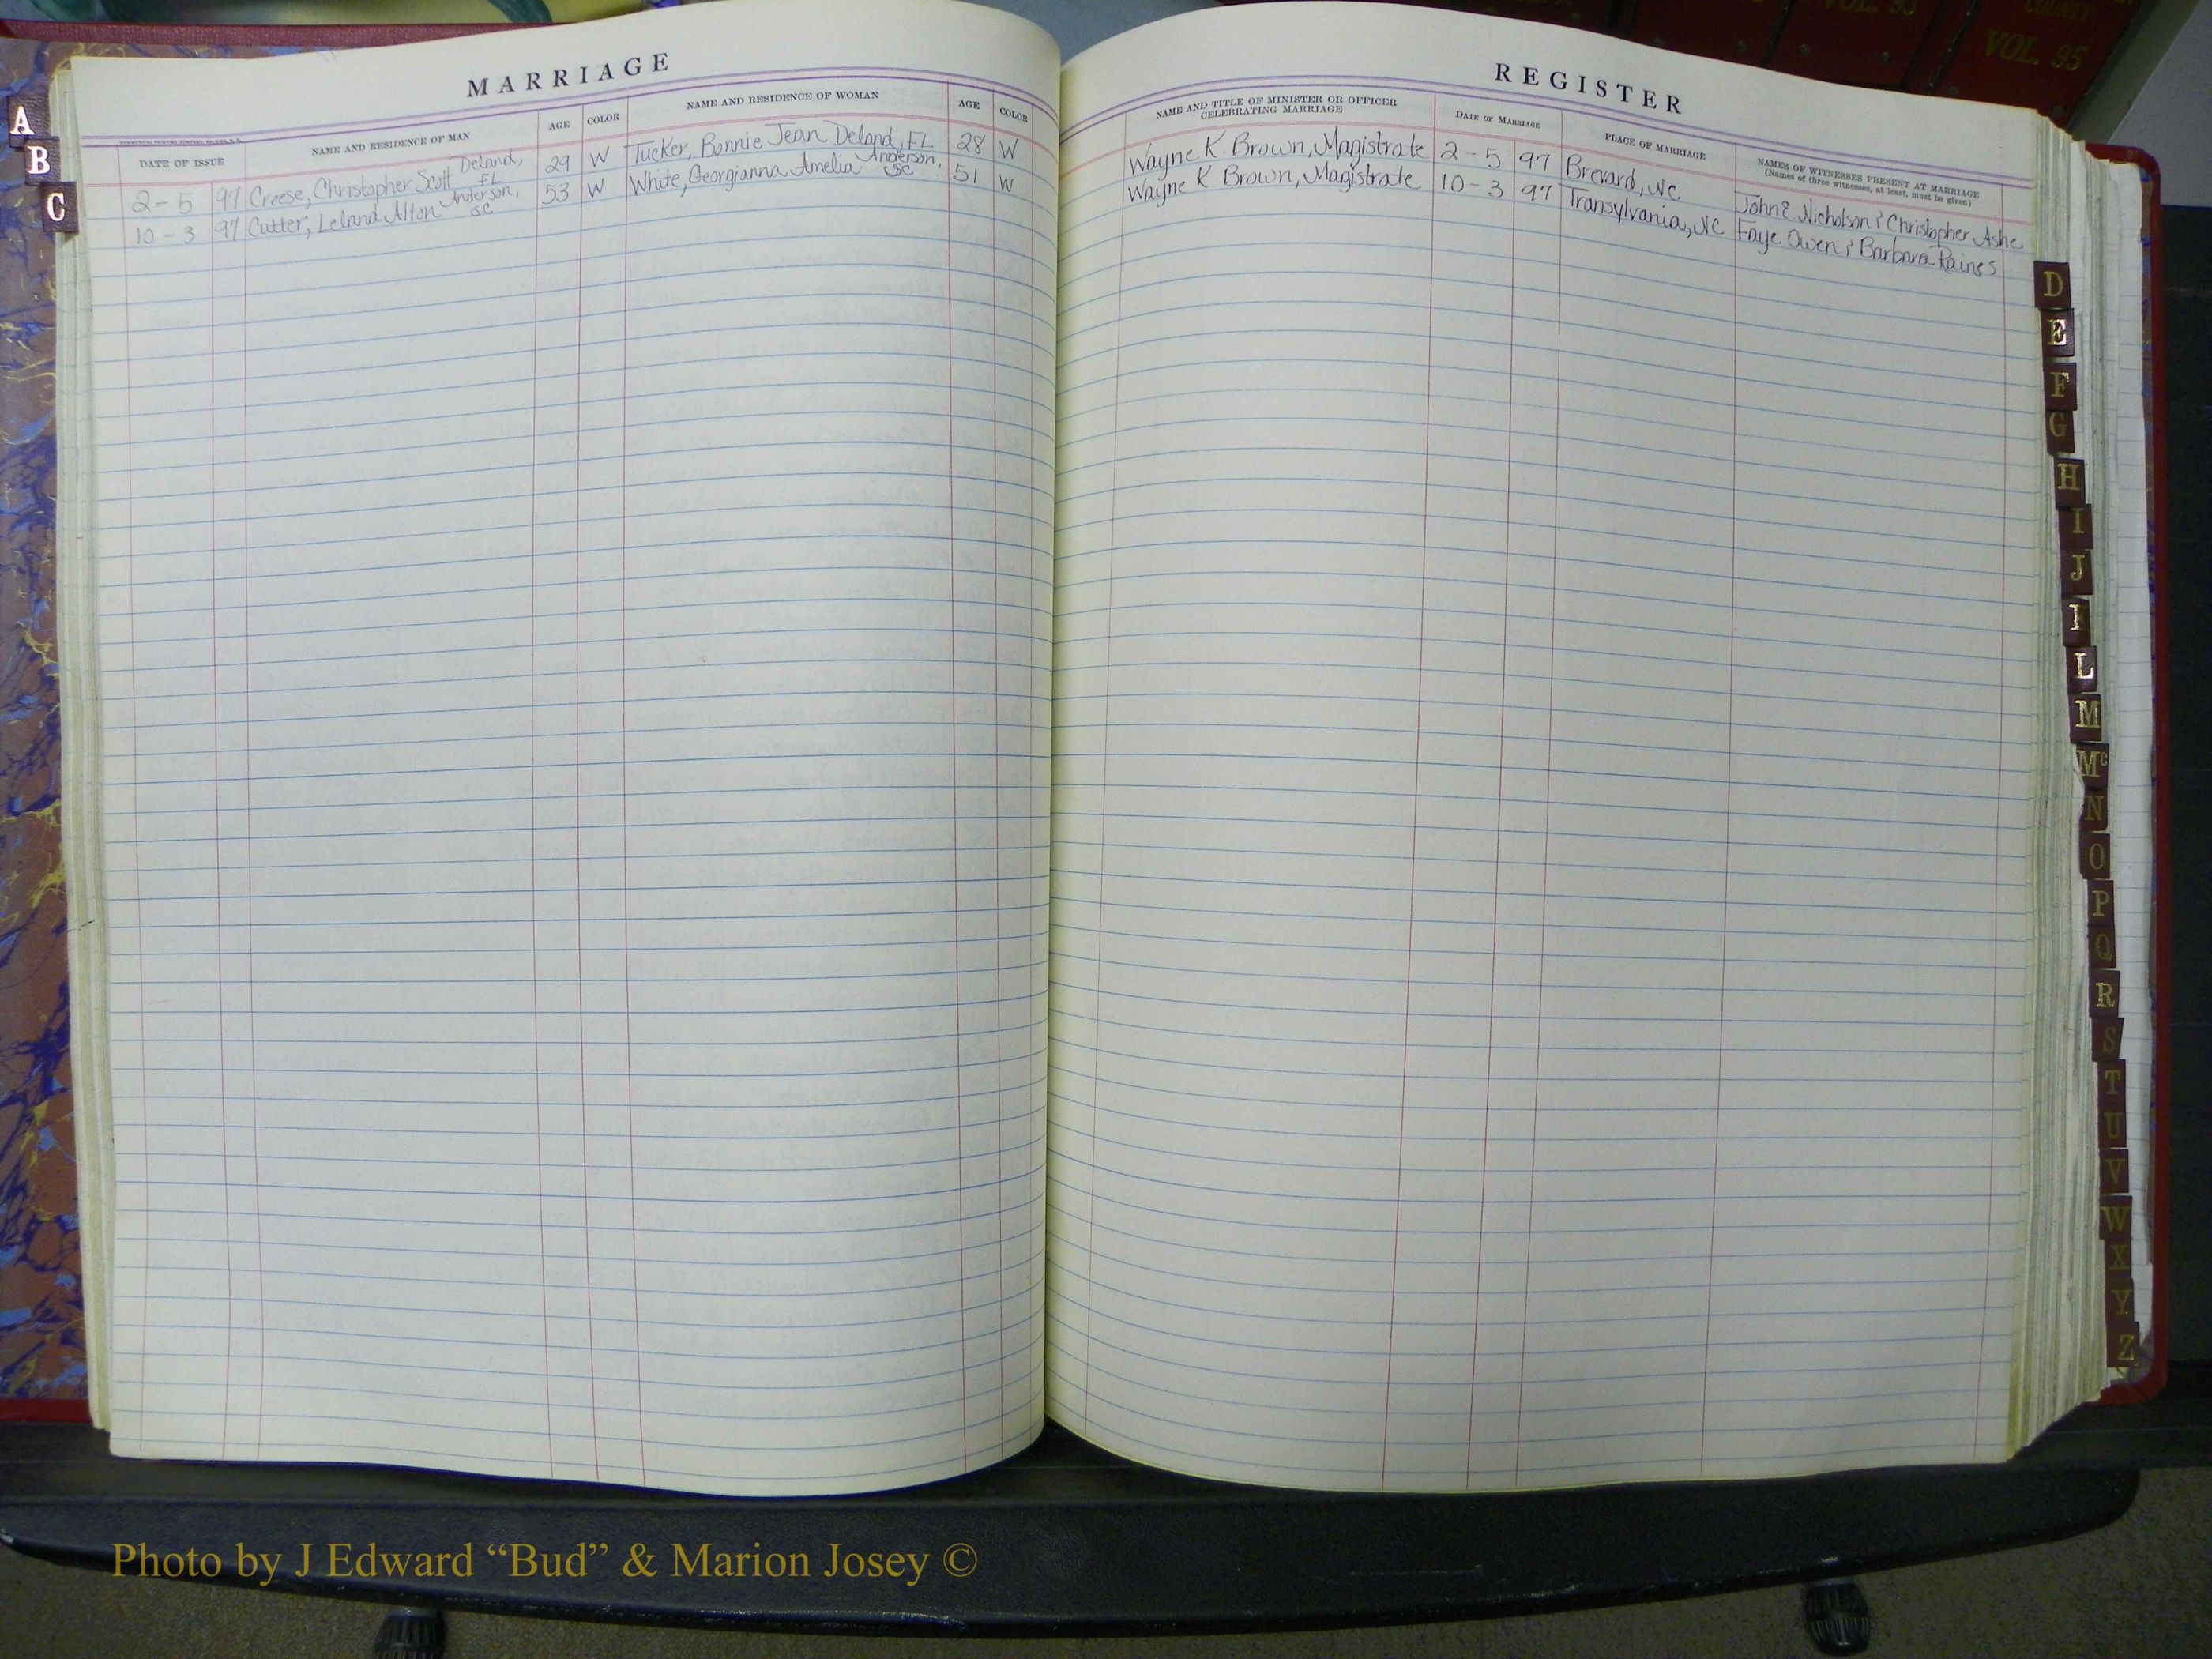 VOL. 93
COUNTY
VOL. 95
MARRIAGE
DATE OF ISSUE NAME AND RESIDENCE OF MAN AGE COLOR NAME AND RESIDENCE OF WOMAN AGE COLOR
2-5 97 Creese, Christopher Scott Deland, FL 29 W Tucker, Bonnie Jean Deland, FL 28 W
10-3 97 Cutter, Leland Alton Anderson, SC 53 W White, Georgianna Amelia Anderson, SC 51 W
REGISTER
NAME AND TITLE OF MINISTER OR OFFICER CELEBRATING MARRIAGE DATE OF MARRIAGE PLACE OF MARRIAGE NAMES OF WITNESSES PRESENT AT MARRIAGE
(Names of three witnesses, at least, must be given)
Wayne K. Brown, Magistrate 2-5 97 Brevard, NC John E Nicholson & Christopher Ashe
Wayne K Brown, Magistrate 10-3 97 Transylvania, NC Faye Owen & Barbara Raines
A
B
C
D
E
F
G
H
I
J
L
M
Mc
N
O
P
Q
R
S
T
U
V
W
X
Y
Z
Photo by J Edward “Bud” & Marion Josey ©